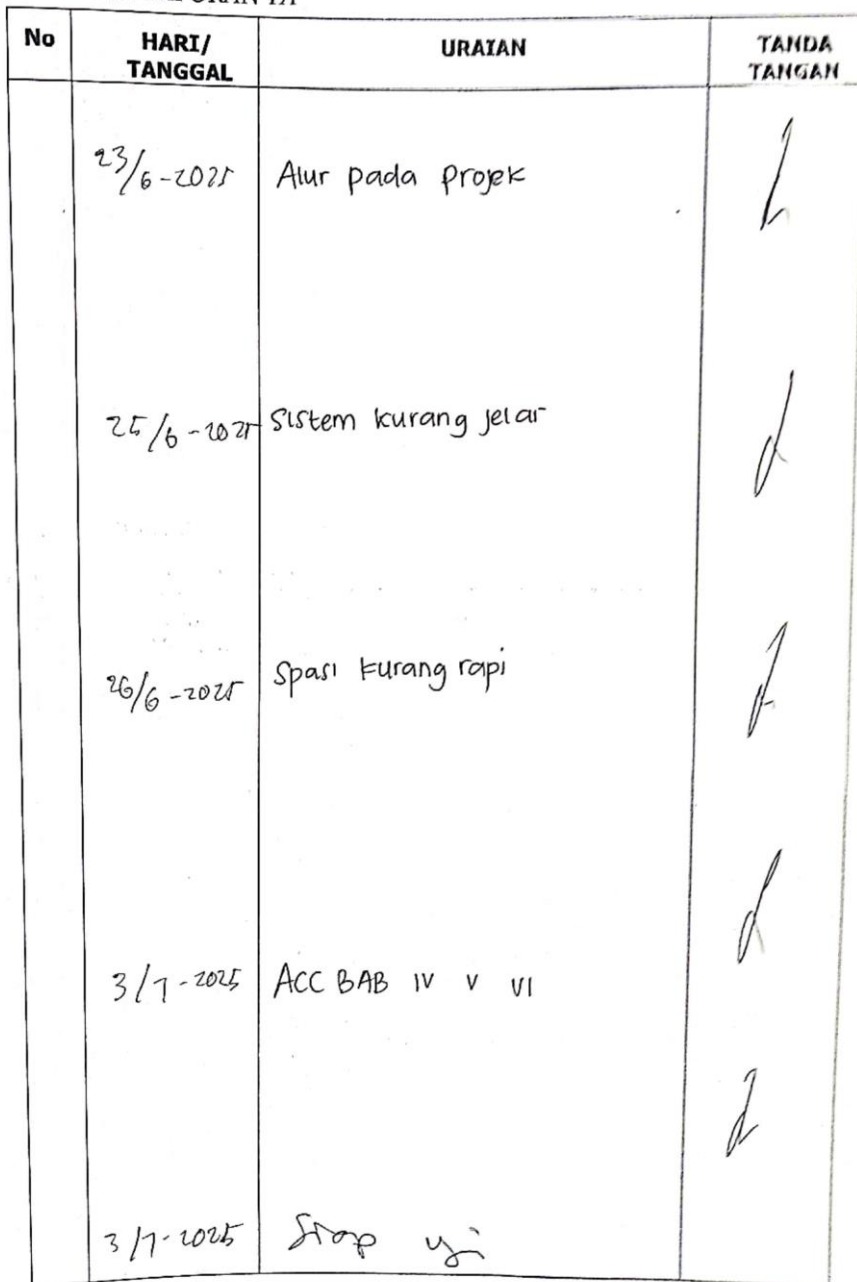 No HARI/ URAIAN TANDA
TANGGAL TANGAN
23/6-2025 Alur pada projek
25/6-2025 Sistem kurang jelas
26/6-2025 Spasi kurang rapi
3/7-2025 ACC BAB IV V VI
3/7-2025 Siap uji